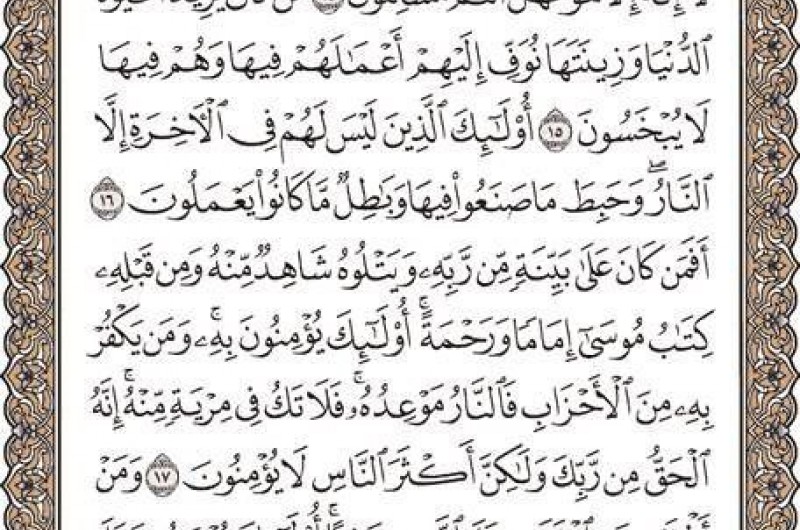 لَا إِلَٰهَ إِلَّا هُوَ فَهَلْ أَنتُم مُّسْلِمُونَ ١٤ مَن كَانَ يُرِيدُ الْحَيَوٰةَ
الدُّنْيَا وَزِينَتَهَا نُوَفِّ إِلَيْهِمْ أَعْمَٰلَهُمْ فِيهَا وَهُمْ فِيهَا
لَا يُبْخَسُونَ ١٥ أُوْلَٰٓئِكَ الَّذِينَ لَيْسَ لَهُمْ فِي الْأٓخِرَةِ إِلَّا
النَّارُۖ وَحَبِطَ مَا صَنَعُواْ فِيهَا وَبَٰطِلٌ مَّا كَانُواْ يَعْمَلُونَ ١٦
أَفَمَن كَانَ عَلَىٰ بَيِّنَةٍ مِّن رَّبِّهِۦ وَيَتْلُوهُ شَاهِدٌ مِّنْهُ وَمِن قَبْلِهِۦ
كِتَٰبُ مُوسَىٰٓ إِمَامًا وَرَحْمَةًۚ أُوْلَٰٓئِكَ يُؤْمِنُونَ بِهِۦۚ وَمَن يَكْفُرْ
بِهِۦ مِنَ الْأَحْزَابِ فَالنَّارُ مَوْعِدُهُۥۚ فَلَا تَكُ فِي مِرْيَةٍ مِّنْهُۚ إِنَّهُ
الْحَقُّ مِن رَّبِّكَ وَلَٰكِنَّ أَكْثَرَ النَّاسِ لَا يُؤْمِنُونَ ١٧ وَمَنْ